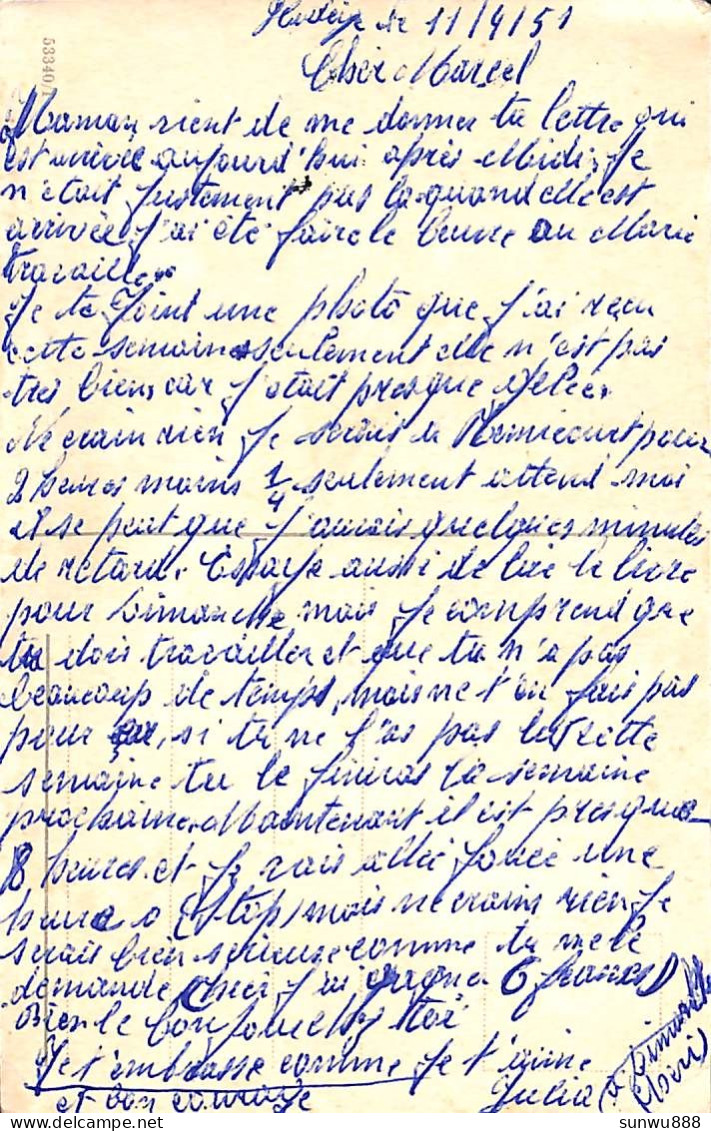 le 11/4/51
Cher Marcel
53340/1
Maman vient de me donner ta lettre qui
est arrivée aujourd'hui après Midi, Je
n'était justement pas là quand elle est
arrivée J'ai été faire le beurre au Marie
travaille..
Je te Joint une photo que J'ai reçu
cette semaine seulement elle n'est pas
tres bien, car J'était presque gelée.
Ne crain rien Je serais a pour
2 heures moins 1/4 seulement attend moi
il se peut que J'aurais quelques minutes
de retard. Essaye aussi de lire le livre
pour Dimanche mais Je comprend que
tu dois travailler et que tu n'a pas
beaucoup de temps, mais ne t'en fais pas
pour ça, si tu ne l'as pas lu cette
semaine tu le finiras la semaine
prochaine. Maintenant il est presque
8 heures et Je vais allé Joué une
heure a (Stop) mais ne crains rien Je
serais bien serieuse comme tu me le
demande (hier J'ai gagner 6 francs)
Bien le bonJour chez toi
Je t'embrasse comme Je t'aime
et bon courage Julia
(a Dimanche
Cheri)
www.delcampe.net
sunwu888